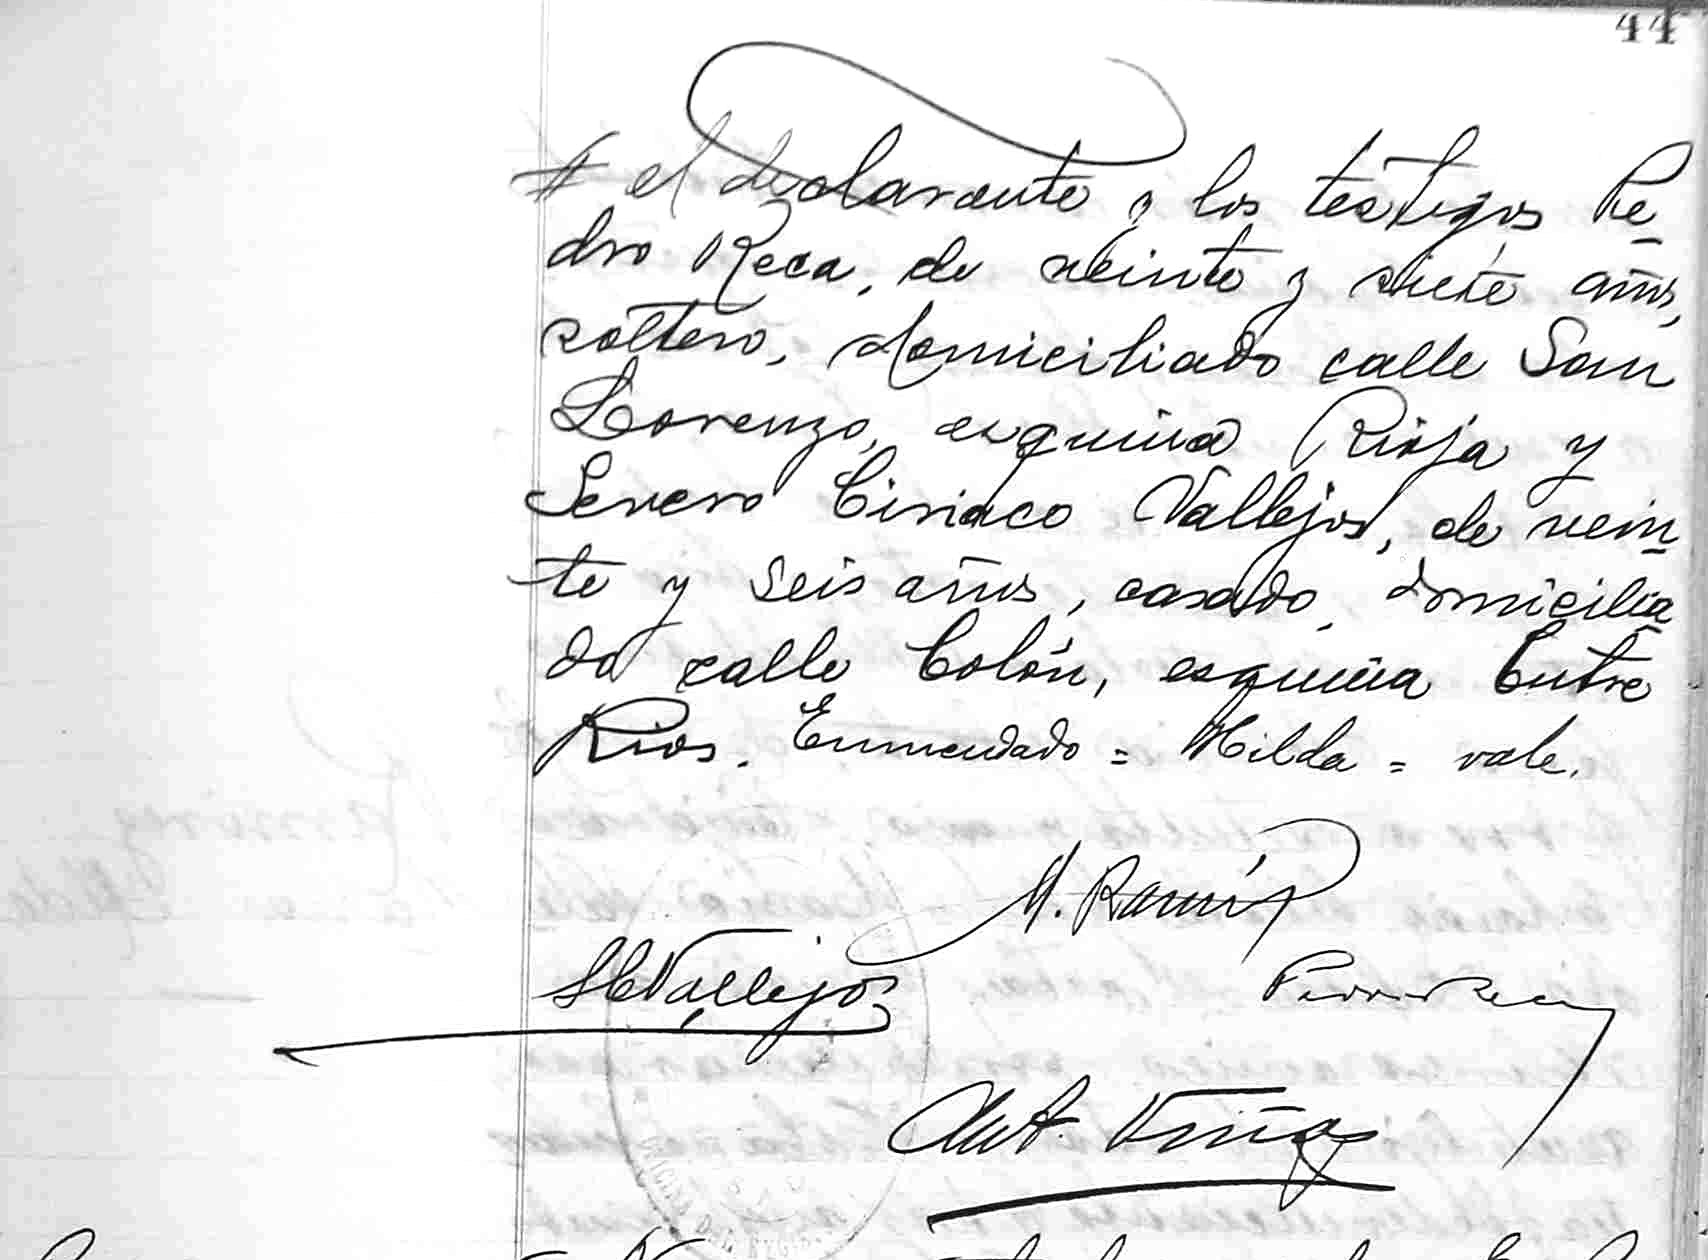 44
# el declarante y los testigos Pe-
dro Reca, de veinte y siete años,
soltero, domiciliado calle San
Lorenzo, esquina Rioja y
Severo Ciriaco Vallejos, de vein-
te y seis años, casado, domicilia-
do calle Colón, esquina Entre
Rios. Enmendado = Hilda = vale.
M. Ramírez
S C Vallejos
Pedro Reca
Viñas